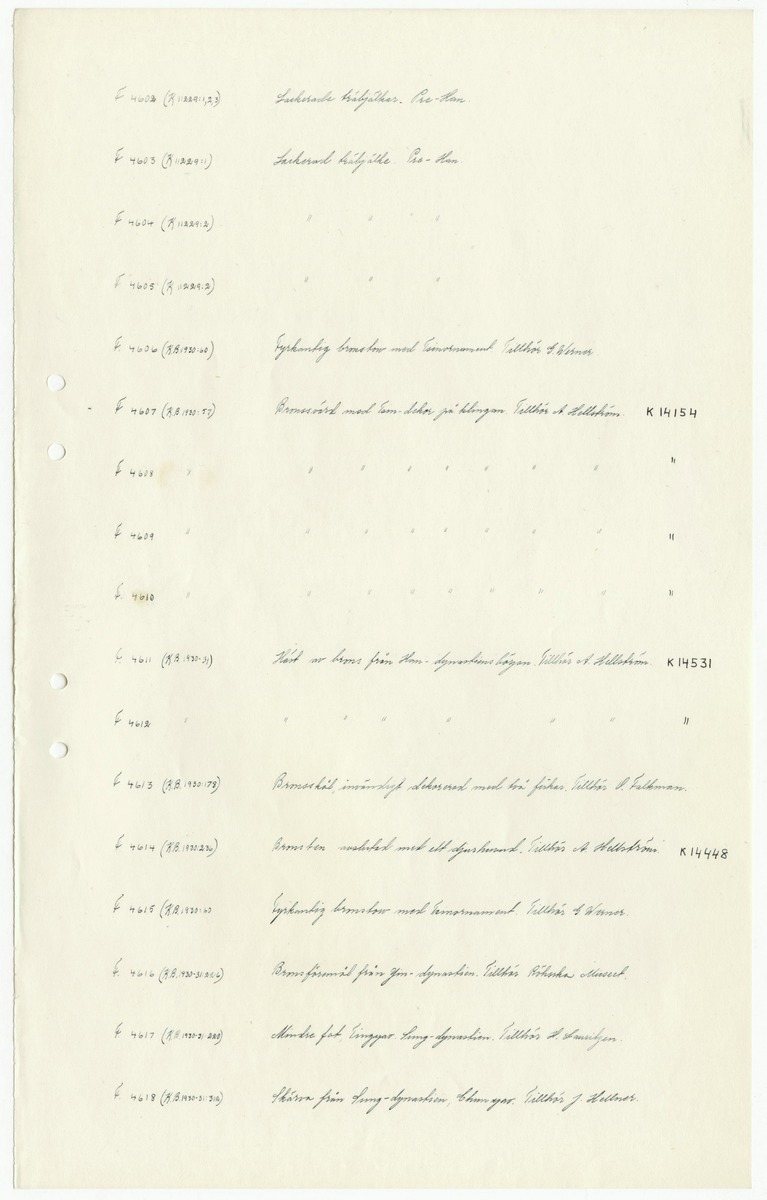 F 4602 (K 11229:1,2,3) Lackerade träbjälkar. Pre-Han
F 4603 (K 11229:1) Lackerad träbjälke. Pre-Han.
F 4604 (K 11229:2) " " "
F 4605 (K 11229:2) " " "
F. 4606 (K.B. 1930:60) Fyrkantig bronstow med ornament. Tillhör G. Werner.
F 4607 (K.B. 1930:57) Bronssvärd med dekor på klingan. Tillhör A. Hellström. K 14154
F 4608 " " " " " " " " "
F 4609 " " " " " " " " "
F. 4610 " " " " " " " " "
F. 4611 (K.B. 1930-31) Häst av brons från Han-dynastiens början. Tillhör A. Hellström. K 14531
F 4612 " " " " " " " "
F 4613 (K.B. 1930:178) Bronsskål, invändigt dekorerad med två fiskar. Tillhör P. Falkman.
F 4614 (K.B. 1930:236) Bronsben avslutad med ett djurhuvud. Tillhör A. Hellström. K 14448
F 4615 (K.B. 1930:60 Fyrkantig bronstow med ornament. Tillhör G. Werner.
F. 4616 (K.B. Bronsföremål från Yin-dynastien. Tillhör Röhsska Museet.
F. 4617 (K.B. 1930-31:220) Mindre fat. Tingyao. Sung-dynastien. Tillhör H. Lauritzen.
F. 4618 (K.B. 1930-31:312) Skärva från Sung-dynastien, Chunyao. Tillhör J. Hellner.